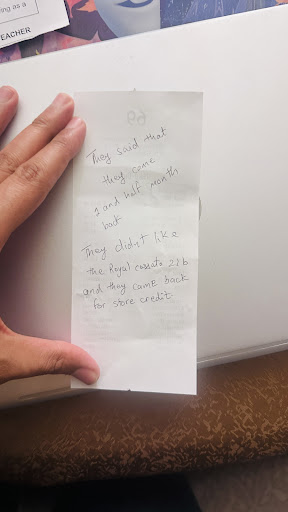 ing as a
EACHER
69
They said that
they came
1 and half month
back
They didn't like
the Royal cassata 22b
and they came back
for store credit